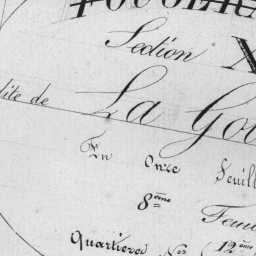 Section X
dite de La Go
En Onze Feuill
8ème Feui
Quartiere No (12ème